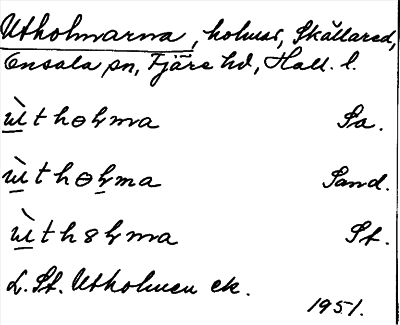 Utholmarna, holmar, Skållared,
Onsala sn, Fjäre hd, Hall. l.
ùthɵɫma Sa.
ùthɵɫma Sand.
ùth8ɫma St.
L. St. Utholmen ek.
1951.